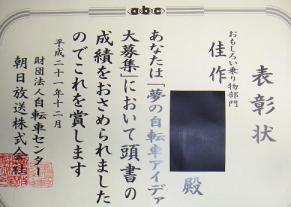 abc
表彰状
おもしろい乗り物部門
佳作
殿
あなたは「夢の自転車アイデア
大募集」において頭書の
成績をおさめられました
のでこれを賞します
平成二十一年十二月
財団法人自転車センター
朝日放送株式会社